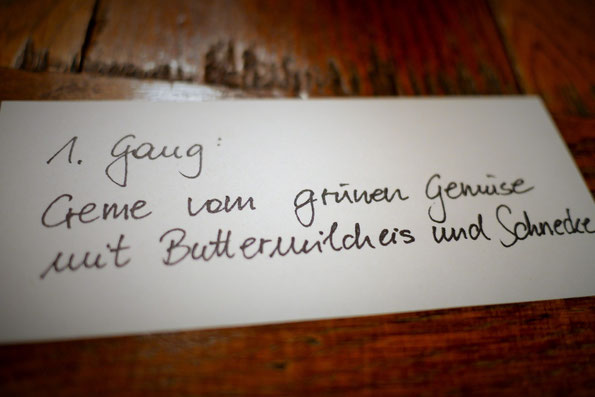 1. Gang:
Creme vom grünen Gemüse
mit Buttermilcheis und Schnecke